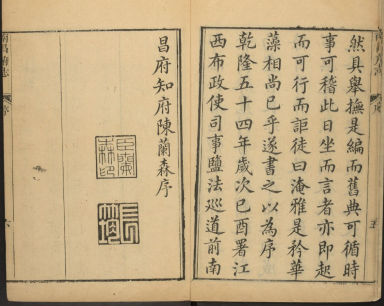 然具舉撫是編而舊典可循時
事可稽此日坐而言者亦即起
而可行而詎徒曰淹雅是矜華
藻相尚已乎遂書之以為序
乾隆五十四年歲次己酉署江
西布政使司事鹽法巡道前南
昌府知府陳蘭森序